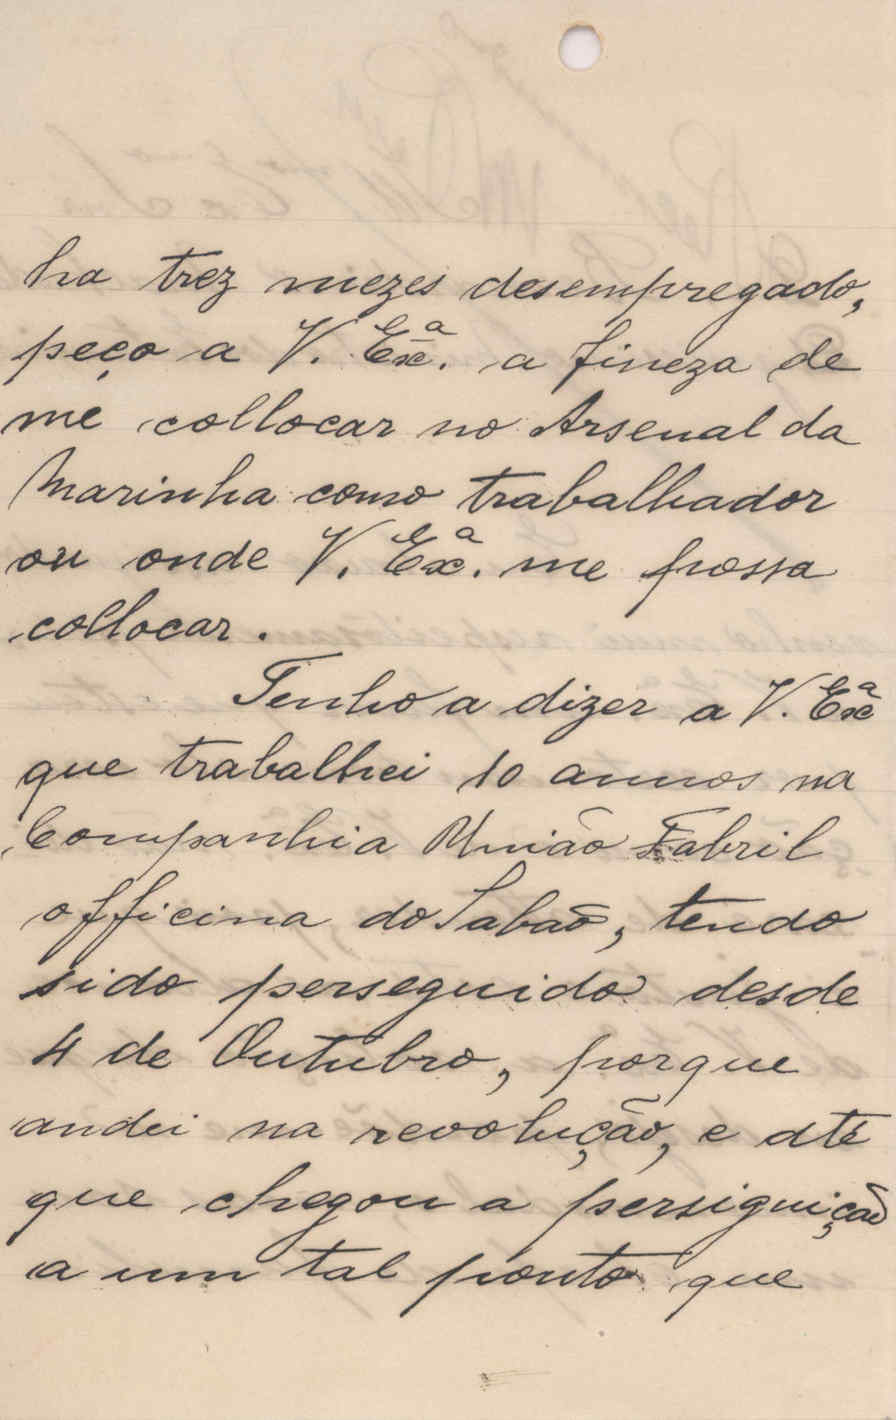 ha trez mezes desempregado,
peço a V. Exª. a fineza de
me collocar no Arsenal da
Marinha como trabalhador
ou onde V. Exª. me possa
collocar.
Tenho a dizer a V. Exª
que trabalhei 10 annos na
Companhia União Fabril
officina do Sabão, tendo
sido perseguido desde
4 de Outubro, porque
andei na revolução, e até
que chegou a persiguição
a um tal ponto que